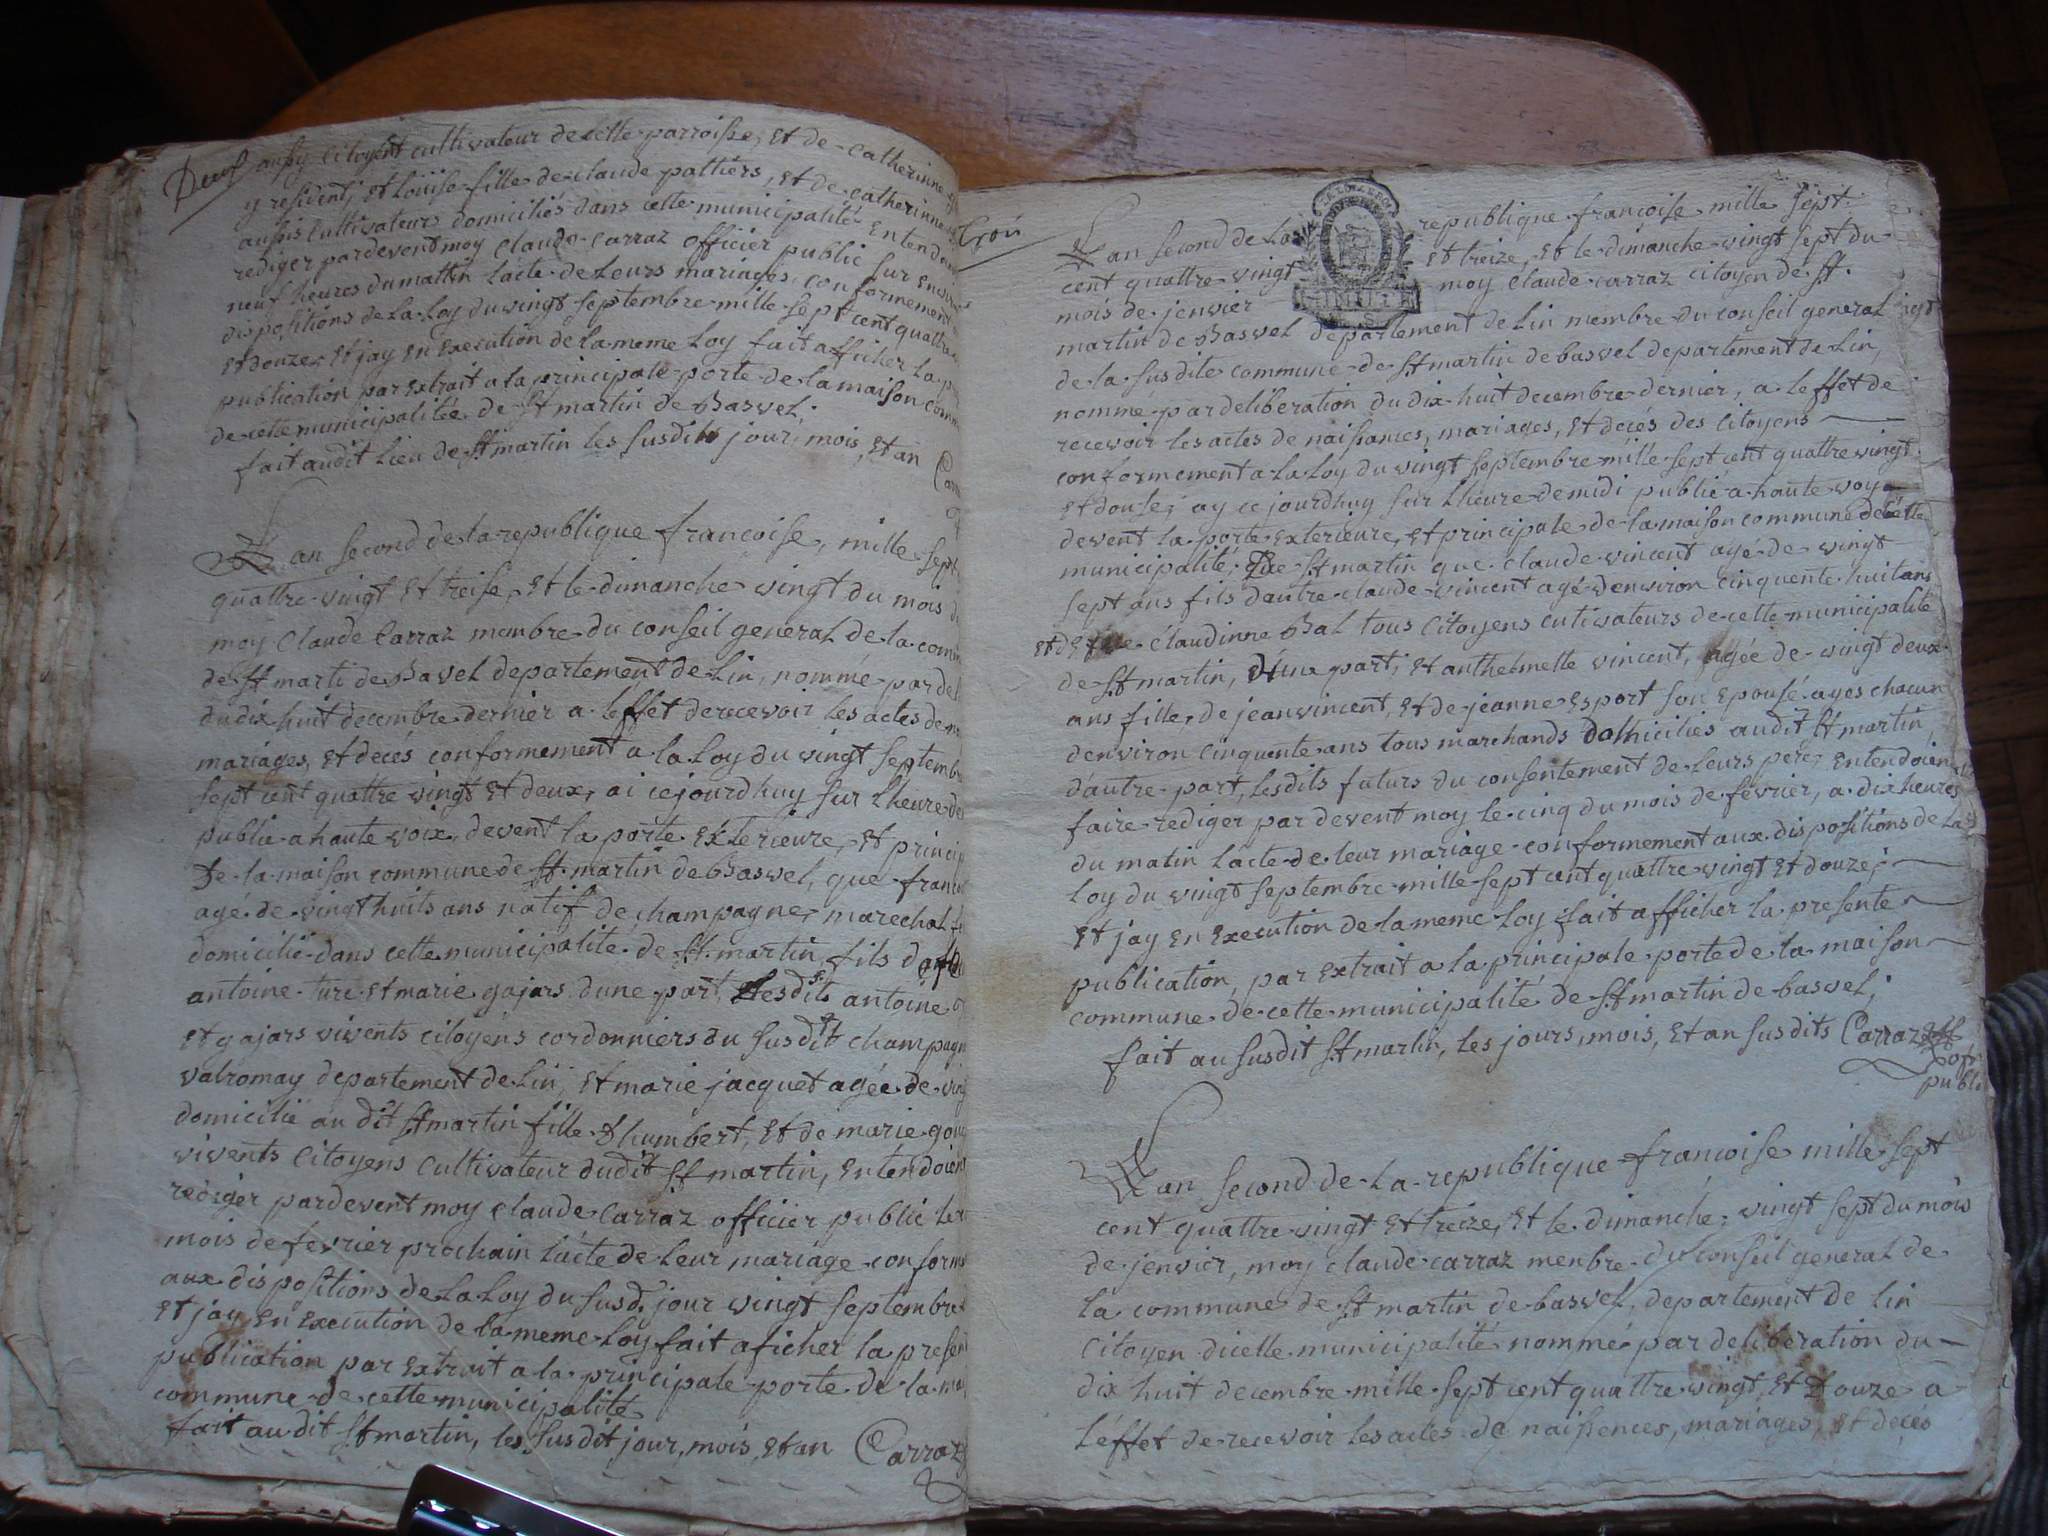 Deux
aussy citoyent cultivateur de cette parroisse, et de catherinne
y resident, et loüise fille de claude pattiers, et de catherinne
aussis cultivateurs domiciliés dans cette municipalité entend
rediger pardevent moy claude carraz officier public sur envi
neuf heures du mattin lacte de leurs mariages conformement
dispositions de la loy du vingt septembre mille sept cent quattre
et douze, et jay en execution de la meme loy fait afficher la p
publication par extrait a la principale porte de la maison comm
de cette municipalitée de st martin de Bavel.
fait audit lieu de st martin les susdits jour, mois, et an
Lan second de la republique francoise, mille sept
quattre vingt et treise, et le dimanche vingt du mois d
moy Claude Carraz membre du conseil general de la comm
de st marti de Bavel departement de lin, nommé par del
du dix huit decembre dernier a leffet derecevoir les actes de
mariages, et decés conformement a la loy du vingt septemb
sept cent quattre vingt et deux, ai cejourdhuy sur lheure de
publie a haute voix, devent la porte exterieure, et princip
De la maison commune de st martin de Bavel, que fran
agé de vingt huits ans natif de champagne, marechal
domicilié dans cette municipalité de st martin, fils d
antoine turc et marie gajars dune part, lesdits antoine
et gajars vivents citoyens cordonniers du susdit champagn
valromay departement de lin, et marie jacquet agée de ving
domicilié au dit st martin fille dhumbert, et de marie gou
vivents citoyens cultivateur dudit st martin, entendoient
rediger pardevent moy claude carraz officier public le
mois de fevrier prochain lacte de leur mariage conform
aux dispositions de la loy du susd. jour vingt septembre
et jay en execution de la meme loy fait aficher la presen
publication par extrait a la principale porte de la ma
commune de cette municipalité
fait au dit st martin, les susdit jour, mois, et an Carraz
Lan second de la republique francoise mille sept
cent quattre vingt et treize, et le dimanche vingt sept du
mois de jenvier moy claude carraz citoyen de st.
martin de Bavel departement de lin membre du conseil general
de la susdite commune de st martin de bavel departement de lin,
nommé par deliberation du dix huit decembre dernier, a leffet de
recevoir les actes de naissances, mariages, et décés des citoyens
conformement a la loy du vingt septembre mille sept cent quattre vingt
et douse, ay ce jourdhuy sur lheure de midi publié a haute voy
devent la porte exterieure, et principale de la maison commune de cette
municipalité de st martin que claude vincent agé de vingt
sept ans fils dautre claude vincent agé denviron cinquente huit ans
et de claudinne Bal tous citoyens cutivateurs de cette municipalité
de st martin, d'une part, et anthelmette vincent, agée de vingt deux
ans fille, de jean vincent, et de jeanne esport son epouse ages chacun
denviron cinquente ans tous marchands domiciliés audit st martin,
d'autre part, lesdits futurs du consentement de leurs pere, entendoient
faire rediger par devent moy le cinq du mois de fevrier, a dix heures
du matin lacte de leur mariage conformement aux dispositions de la
loy du vingt septembre mille sept cent quattre vingt et douze,
et jay en execution de la meme loy fait afficher la presente
publication, par extrait a la principale porte de la maison
commune de cette municipalité de st martin de bavel;
fait au susdit st martin, les jours, mois, et an susdits Carraz off
publi
Lan second de la republique francoise mille sept
cent quattre vingt et treize, et le dimanche, vingt sept du mois
de jenvier, moy claude carraz menbre du conseil general de
la commune de st martin de bavel, departement de lin
citoyen dicelle municipalité nommé par deliberation du
dix huit decembre mille sept cent quattre vingt, et douze a
l'effet de recevoir les actes de naissences, mariages, et decés